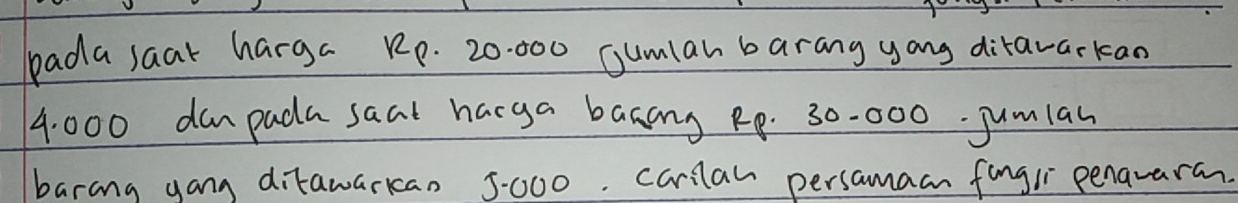 pada saat harga Rp. 20.000 jumlah barang yang ditawarkan
4.000 dan pada saat harga barang Rp. 30.000. jumlah
barang yang ditawarkan 5.000. carilah persamaan fungsi penawaran.